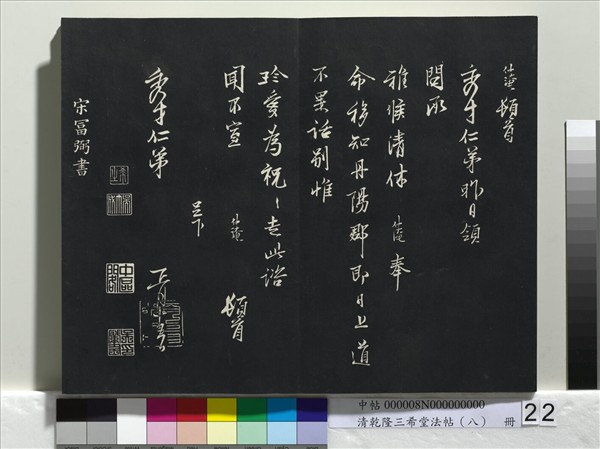 仕淹頓首
秀才仁弟昨日領
問承
雅候清休仕淹奉
命移知丹陽郡即日上道
不果話別惟
珍愛為祝〻走此諮
聞不宣 仕淹頓首
呈下
秀才仁弟 正月
宋富弼書
中帖 000008N000000000
清乾隆三希堂法帖（八） 冊
22